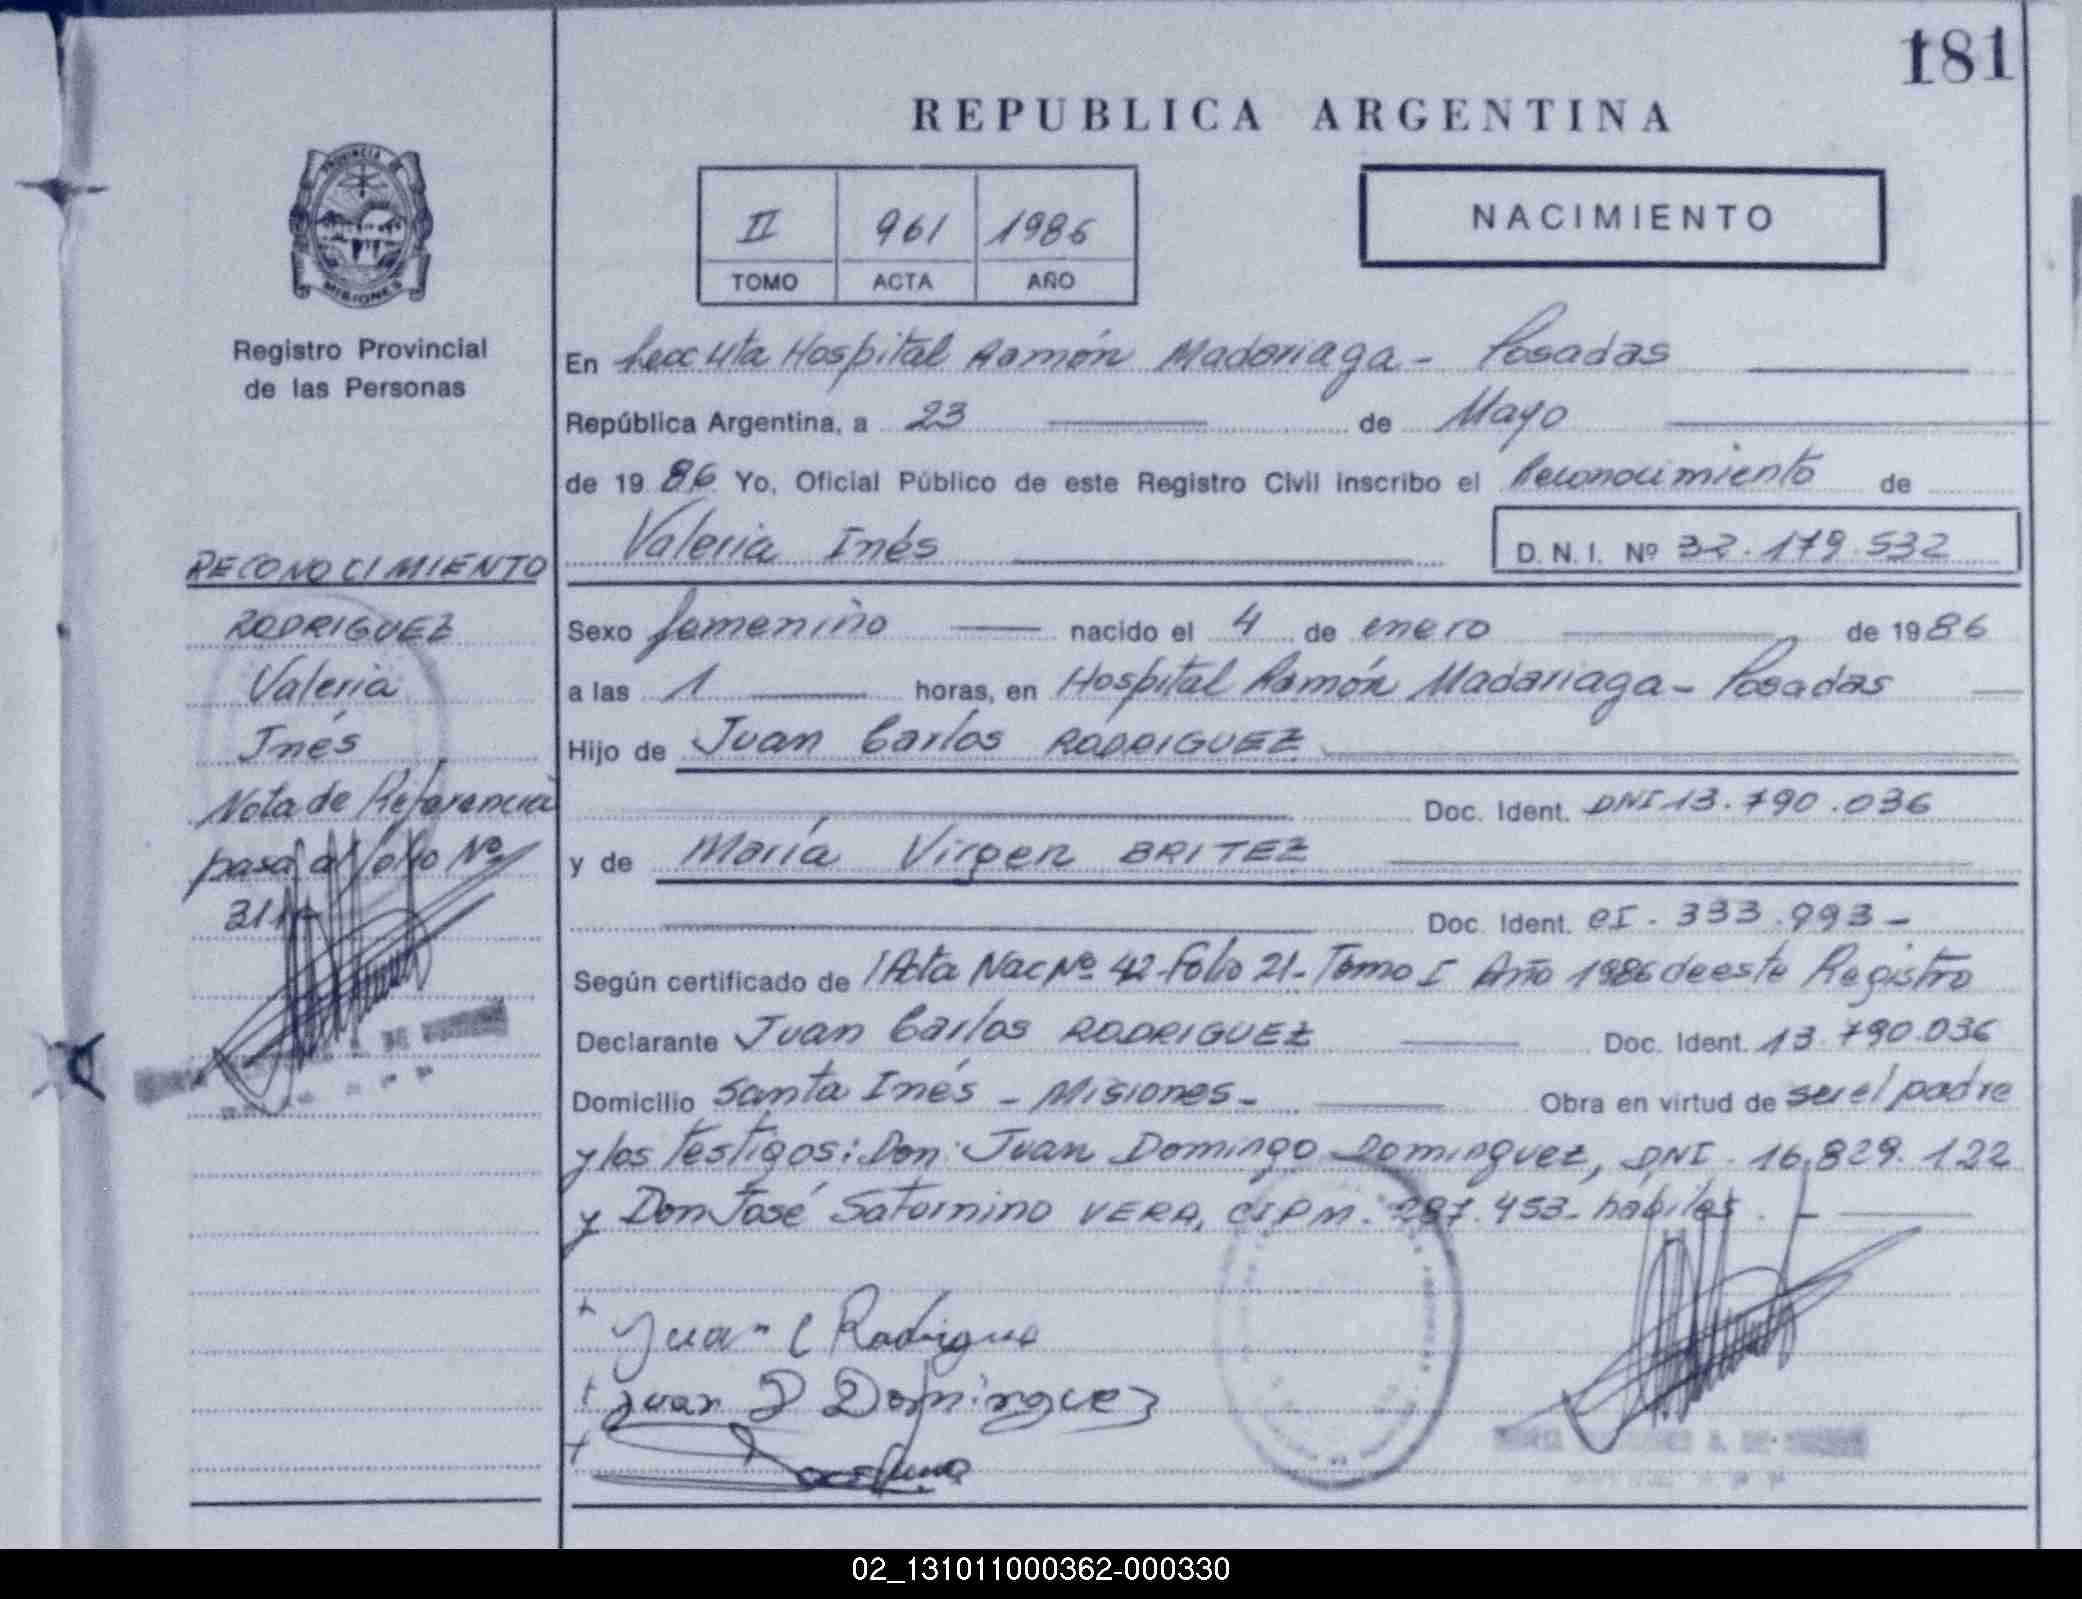 181
REPUBLICA ARGENTINA
PROVINCIA
MISIONES
Registro Provincial
de las Personas
II 961 1986
TOMO ACTA AÑO
NACIMIENTO
En Secc 4ta Hospital Ramón Madariaga - Posadas
República Argentina, a 23 de Mayo
de 1986 Yo, Oficial Público de este Registro Civil inscribo el Reconocimiento de
Valeria Inés D. N. I. Nº 32.179.532
RECONOCIMIENTO
RODRIGUEZ
Valeria
Inés
Nota de Referencia
pasa al folio Nº
311
Sexo femenino nacido el 4 de enero de 1986
a las 1 horas, en Hospital Ramón Madariaga - Posadas
Hijo de Juan Carlos RODRIGUEZ
Doc. Ident. DNI 13.790.036
y de María Virgen BRITEZ
Doc. Ident. CI. 333.993 -
Según certificado de Acta Nac Nº 42 - Folio 21 - Tomo I Año 1986 de este Registro
Declarante Juan Carlos RODRIGUEZ Doc. Ident. 13.790.036
Domicilio Santa Inés - Misiones - Obra en virtud de ser el padre
y los testigos: Don Juan Domingo Dominguez, DNI. 16.829.122
y Don José Saturnino VERA, CIPM. 287.453 - habiles. -
Juan C Rodrigue
Juan D Dominguez
02_131011000362-000330